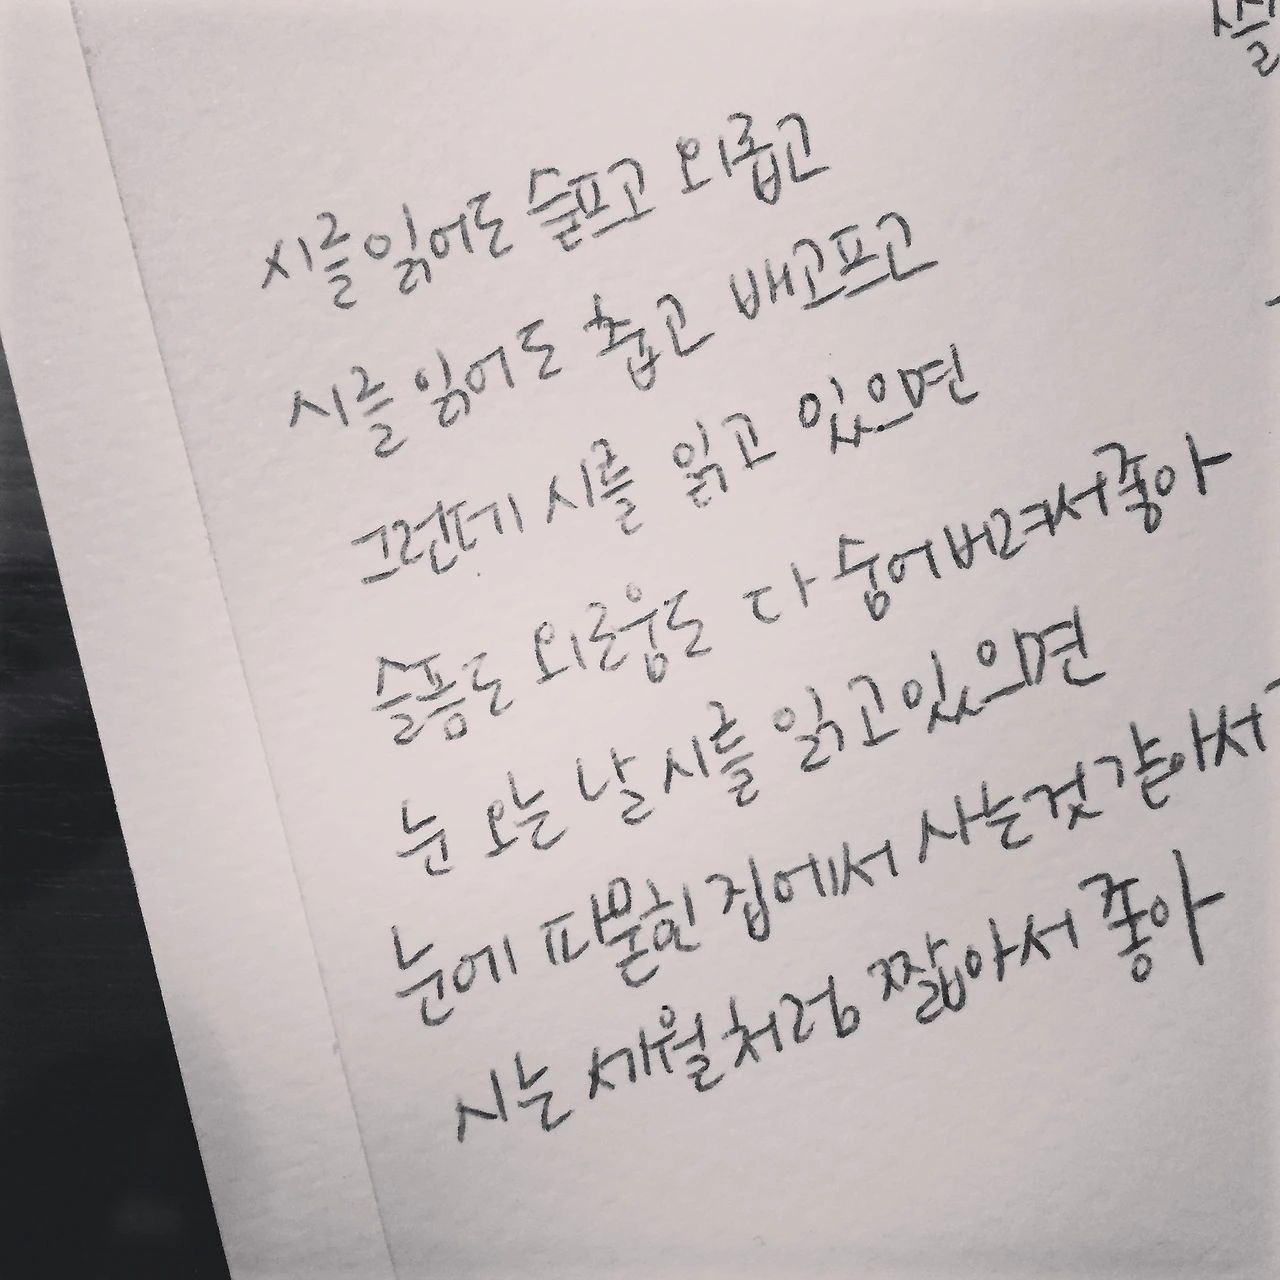 시를 읽어도 슬프고 외롭고
시를 읽어도 춥고 배고프고
그런데 시를 읽고 있으면
슬픔도 외로움도 다 숨어버려서 좋아
눈 오는 날 시를 읽고 있으면
눈에 파묻힌 집에서 사는것 같아서
시는 세월처럼 짧아서 좋아